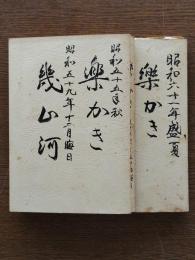 昭和六十一年盛夏
樂かき
昭和五十五年秋
樂かき
昭和五十九年十二月晦日
幾山河